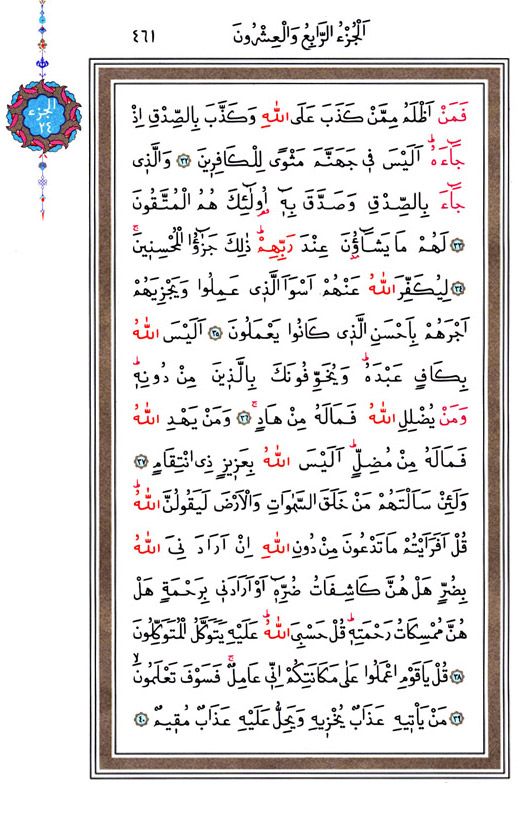 اَلْجُزْءُ الرَّابِعُ وَالْعِشْرُونَ
٤٦١
اَلْجُزْءُ
٢٤
فَمَنْ اَظْلَمُ مِمَّنْ كَذَبَ عَلَى اللّٰهِ وَكَذَّبَ بِالصِّدْقِ اِذْ
جَٓاءَهُۜ اَلَيْسَ ف۪ي جَهَنَّمَ مَثْوًى لِلْكَافِر۪ينَ ﴿٣٢﴾ وَالَّذ۪ي
جَٓاءَ بِالصِّدْقِ وَصَدَّقَ بِه۪ٓ اُو۬لٰٓئِكَ هُمُ الْمُتَّقُونَ
﴿٣٣﴾ لَهُمْ مَا يَشَٓاؤُ۫نَ عِنْدَ رَبِّهِمْۜ ذٰلِكَ جَزٰٓؤُا الْمُحْسِن۪ينَۚ
﴿٣٤﴾ لِيُكَفِّرَ اللّٰهُ عَنْهُمْ اَسْوَاَ الَّذ۪ي عَمِلُوا وَيَجْزِيَهُمْ
اَجْرَهُمْ بِاَحْسَنِ الَّذ۪ي كَانُوا يَعْمَلُونَ ﴿٣٥﴾ اَلَيْسَ اللّٰهُ
بِكَافٍ عَبْدَهُۜ وَيُخَوِّفُونَكَ بِالَّذ۪ينَ مِنْ دُونِه۪ۜ
وَمَنْ يُضْلِلِ اللّٰهُ فَمَا لَهُ مِنْ هَادٍۚ ﴿٣٦﴾ وَمَنْ يَهْدِ اللّٰهُ
فَمَا لَهُ مِنْ مُضِلٍّۜ اَلَيْسَ اللّٰهُ بِعَز۪يزٍ ذِي انْتِقَامٍ ﴿٣٧﴾
وَلَئِنْ سَاَلْتَهُمْ مَنْ خَلَقَ السَّمٰوَاتِ وَالْاَرْضَ لَيَقُولُنَّ اللّٰهُۜ
قُلْ اَفَرَاَيْتُمْ مَا تَدْعُونَ مِنْ دُونِ اللّٰهِ اِنْ اَرَادَنِيَ اللّٰهُ
بِضُرٍّ هَلْ هُنَّ كَاشِفَاتُ ضُرِّه۪ٓ اَوْ اَرَادَن۪ي بِرَحْمَةٍ هَلْ
هُنَّ مُمْسِكَاتُ رَحْمَتِه۪ۜ قُلْ حَسْبِيَ اللّٰهُۜ عَلَيْهِ يَتَوَكَّلُ الْمُتَوَكِّلُونَ
﴿٣٨﴾ قُلْ يَا قَوْمِ اعْمَلُوا عَلٰى مَكَانَتِكُمْ اِنّ۪ي عَامِلٌۚ فَسَوْفَ تَعْلَمُونَۙ
﴿٣٩﴾ مَنْ يَأْت۪يهِ عَذَابٌ يُخْز۪يهِ وَيَحِلُّ عَلَيْهِ عَذَابٌ مُق۪يمٌ ﴿٤٠﴾